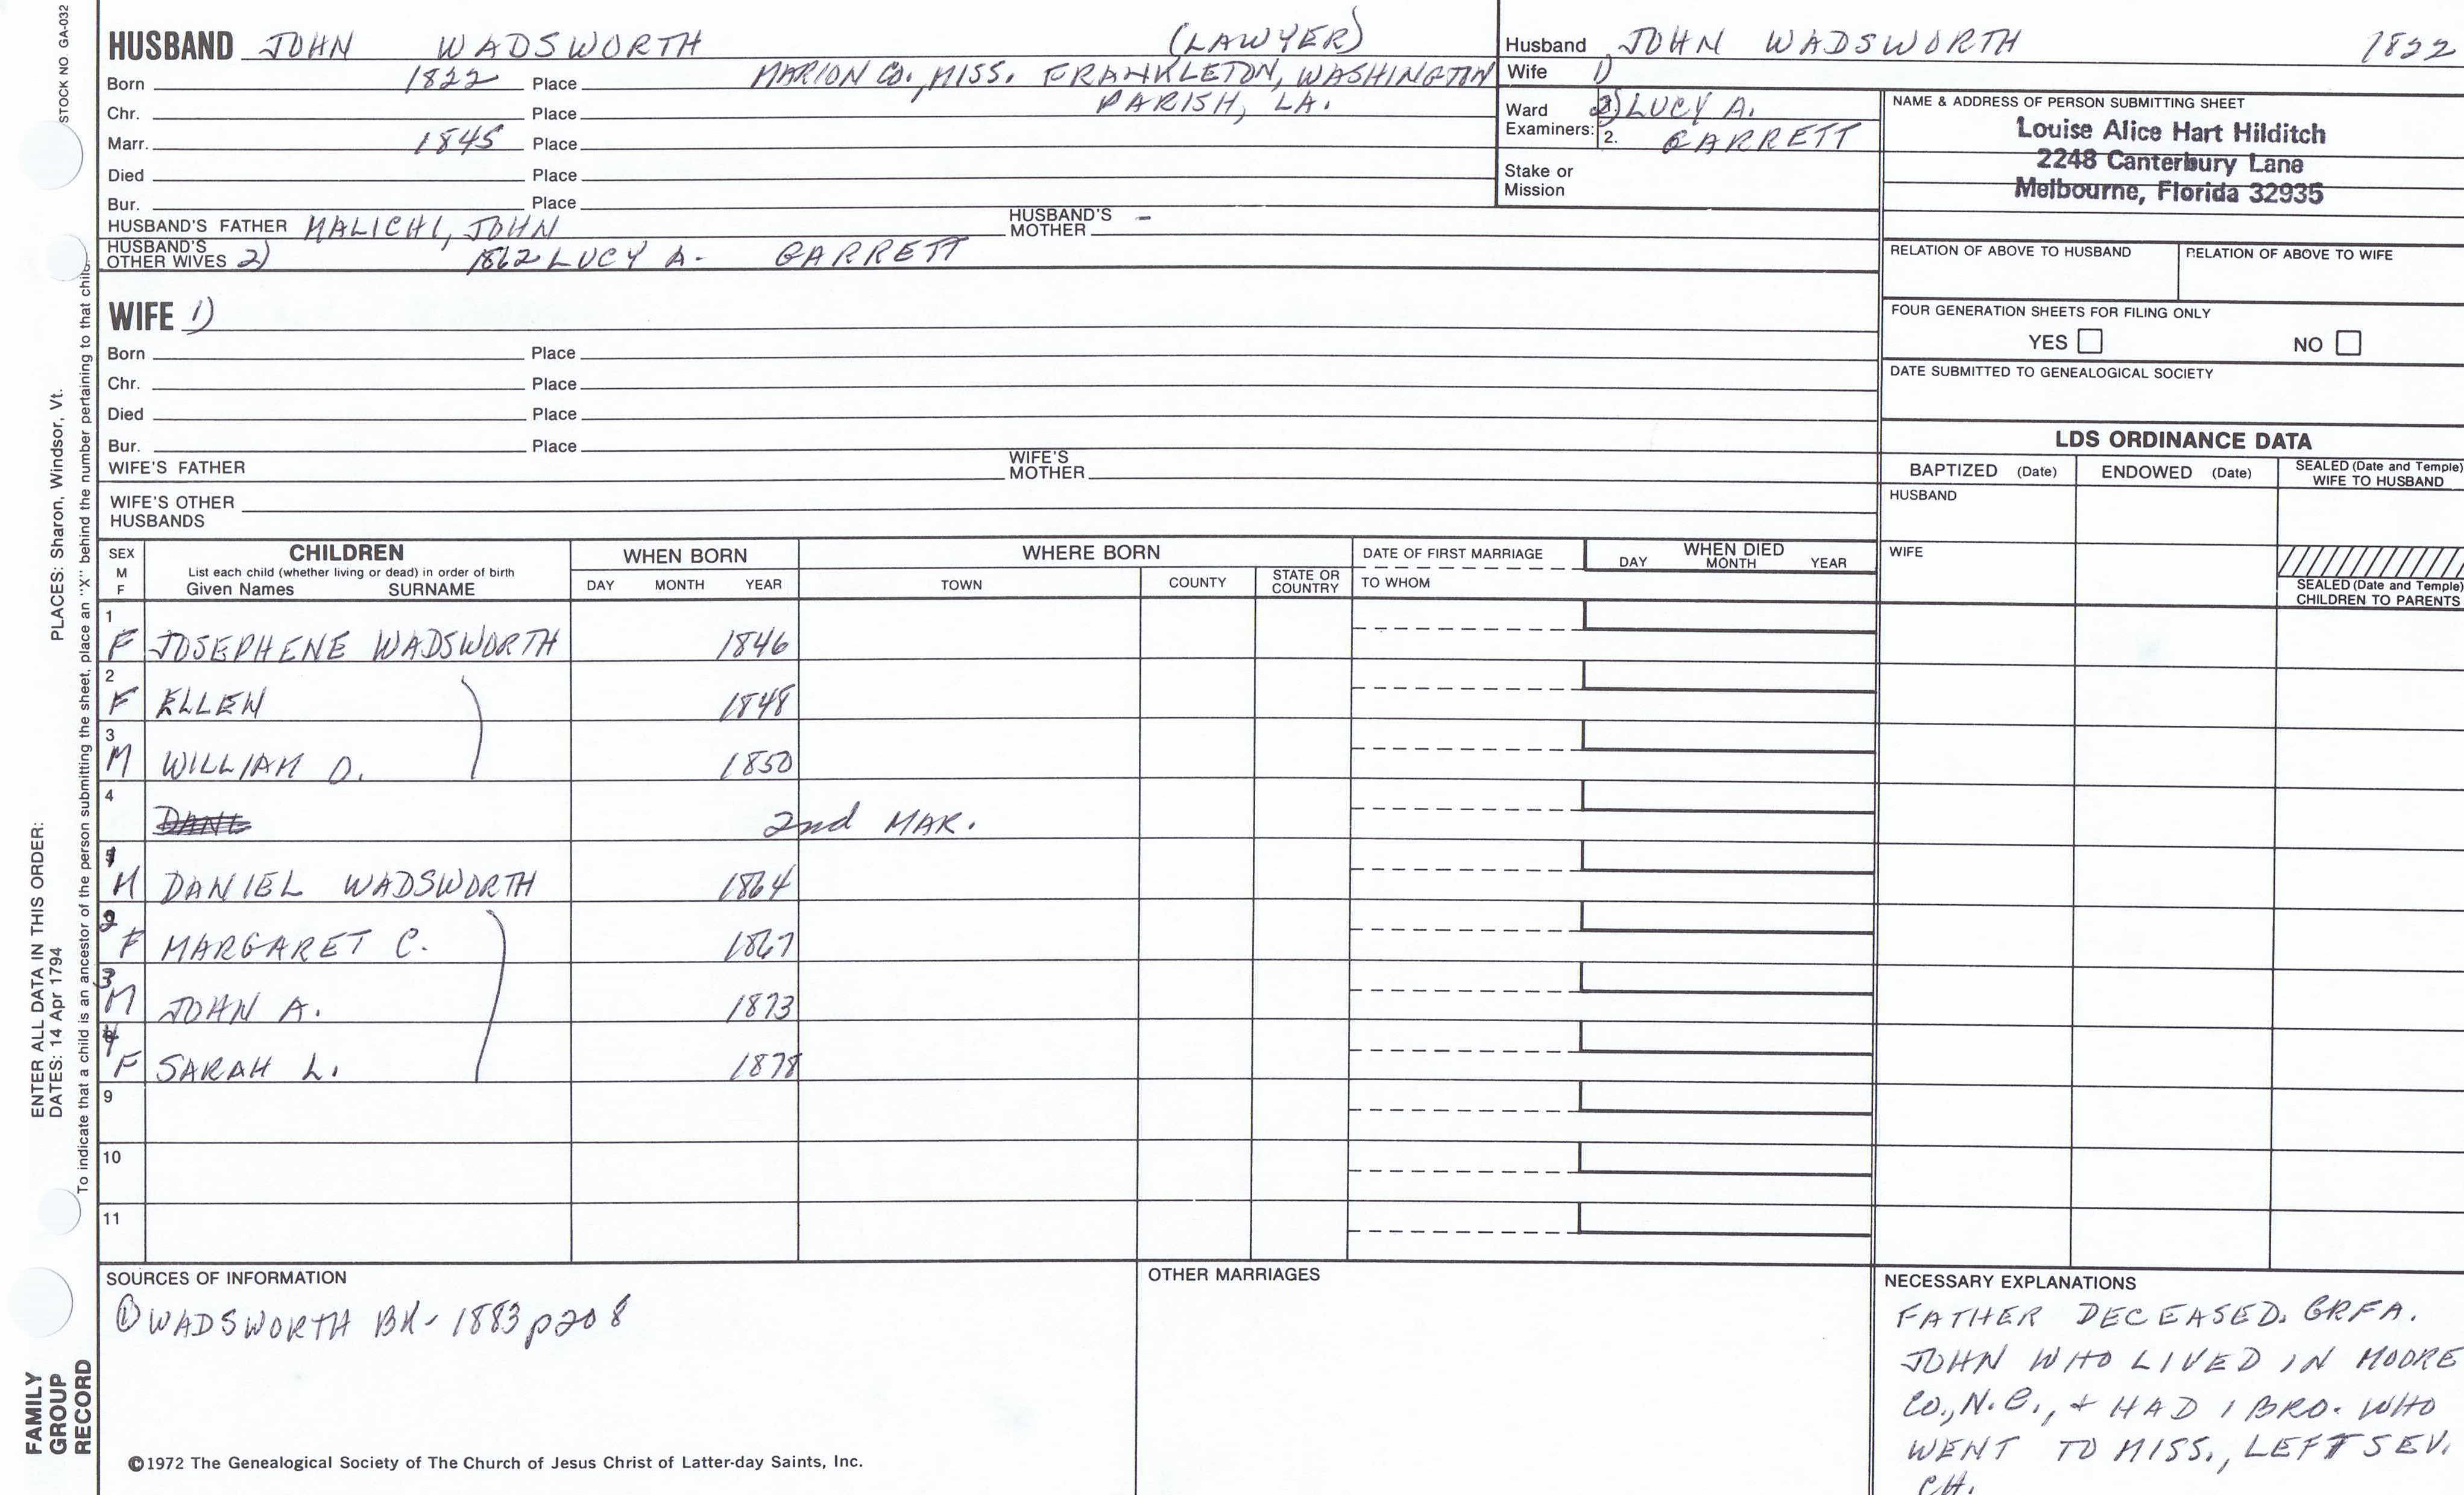 STOCK NO. GA-032
HUSBAND JOHN WADSWORTH (LAWYER)
Born 1822 Place MARION CO., MISS. FRANKLETON, WASHINGTON
PARISH, LA.
Chr. Place
Marr. 1845 Place
Died Place
Bur. Place
HUSBAND'S FATHER MALICHI, JOHN HUSBAND'S MOTHER -
HUSBAND'S OTHER WIVES 2) 1862 LUCY A. GARRETT
Husband JOHN WADSWORTH 1822
Wife 1)
Ward 2) LUCY A.
Examiners: 2. GARRETT
Stake or
Mission
NAME & ADDRESS OF PERSON SUBMITTING SHEET
Louise Alice Hart Hilditch
2248 Canterbury Lane
Melbourne, Florida 32935
RELATION OF ABOVE TO HUSBAND RELATION OF ABOVE TO WIFE
FOUR GENERATION SHEETS FOR FILING ONLY
YES NO
DATE SUBMITTED TO GENEALOGICAL SOCIETY
WIFE 1)
Born Place
Chr. Place
Died Place
Bur. Place
WIFE'S FATHER WIFE'S MOTHER
WIFE'S OTHER
HUSBANDS
LDS ORDINANCE DATA
BAPTIZED (Date) ENDOWED (Date) SEALED (Date and Temple)
WIFE TO HUSBAND
HUSBAND
WIFE
SEALED (Date and Temple)
CHILDREN TO PARENTS
SEX
M
F
CHILDREN
List each child (whether living or dead) in order of birth
Given Names SURNAME
WHEN BORN
DAY MONTH YEAR
WHERE BORN
TOWN COUNTY STATE OR COUNTRY
DATE OF FIRST MARRIAGE
TO WHOM
WHEN DIED
DAY MONTH YEAR
1
F JOSEPHENE WADSWORTH 1846
2
F ELLEN 1848
3
M WILLIAM D. 1850
4
DANL 2nd MAR.
1
M DANIEL WADSWORTH 1864
2
F MARGARET C. 1867
3
M JOHN A. 1873
4
F SARAH L. 1878
9
10
11
SOURCES OF INFORMATION
① WADSWORTH BK - 1883 p208
OTHER MARRIAGES
NECESSARY EXPLANATIONS
FATHER DECEASED. GRFA.
JOHN WHO LIVED IN MOORE
CO., N.C., + HAD 1 BRO. WHO
WENT TO MISS., LEFT SEV.
CH.
©1972 The Genealogical Society of The Church of Jesus Christ of Latter-day Saints, Inc.
FAMILY
GROUP
RECORD
ENTER ALL DATA IN THIS ORDER:
DATES: 14 Apr 1794 PLACES: Sharon, Windsor, Vt.
To indicate that a child is an ancestor of the person submitting the sheet, place an "X" behind the number pertaining to that child.